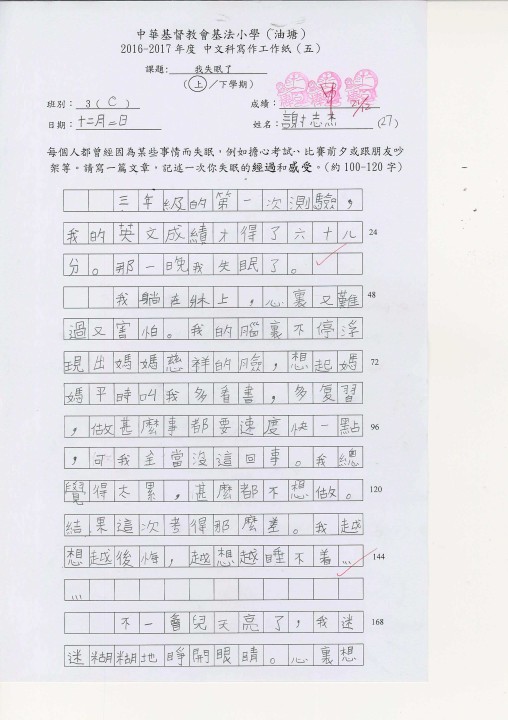 中華基督教會基法小學（油塘）
2016-2017年度 中文科寫作工作紙（五）
課題：我失眠了
（上／下學期）
班別：3（C） 成績：甲 21/12
日期：十二月二日 姓名：謝志杰（27）
每個人都曾經因為某些事情而失眠，例如擔心考試、比賽前夕或跟朋友吵
架等。請寫一篇文章，記述一次你失眠的經過和感受。（約100-120字）
三年級的第一次測驗，
我的英文成績才得了六十八 24
分。那一晚我失眠了。
我躺在牀上，心裏又難 48
過又害怕。我的腦裏不停浮
現出媽媽慈祥的臉，想起媽 72
媽平時叫我多看書，多复習
，做甚麼事都要速度快一點 96
，可我全當沒這回事。我總
覺得太累，甚麼都不想做。 120
結果這次考得那麼差。我越
想越後悔，越想越睡不着… 144
…
不一會兒天亮了，我迷 168
迷糊糊地睜開眼睛。心裏想